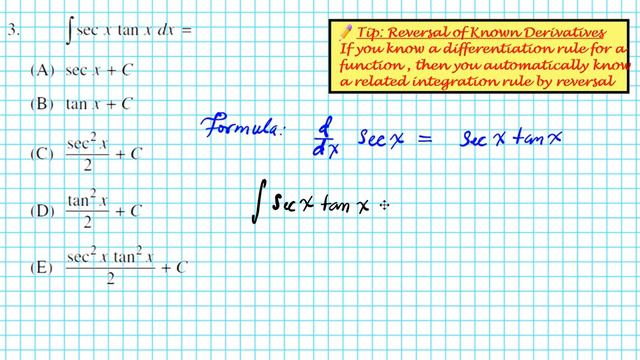 3. ∫ sec x tan x dx =
(A) sec x + C
(B) tan x + C
(C) sec² x / 2 + C
(D) tan² x / 2 + C
(E) sec² x tan² x / 2 + C
Tip: Reversal of Known Derivatives
If you know a differentiation rule for a
function , then you automatically know
a related integration rule by reversal
Formula: d/dx sec x = sec x tan x
∫ sec x tan x